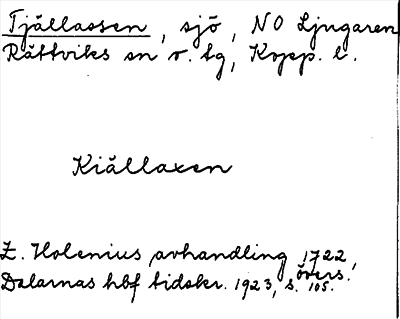 Tjällassen, sjö, NO Ljugaren
Rättviks sn o. tg, Kopp. l.
Kiällaxen
Z. Holenius avhandling 1722,
övers.
Dalarnas hbf tidskr. 1923, s. 105.